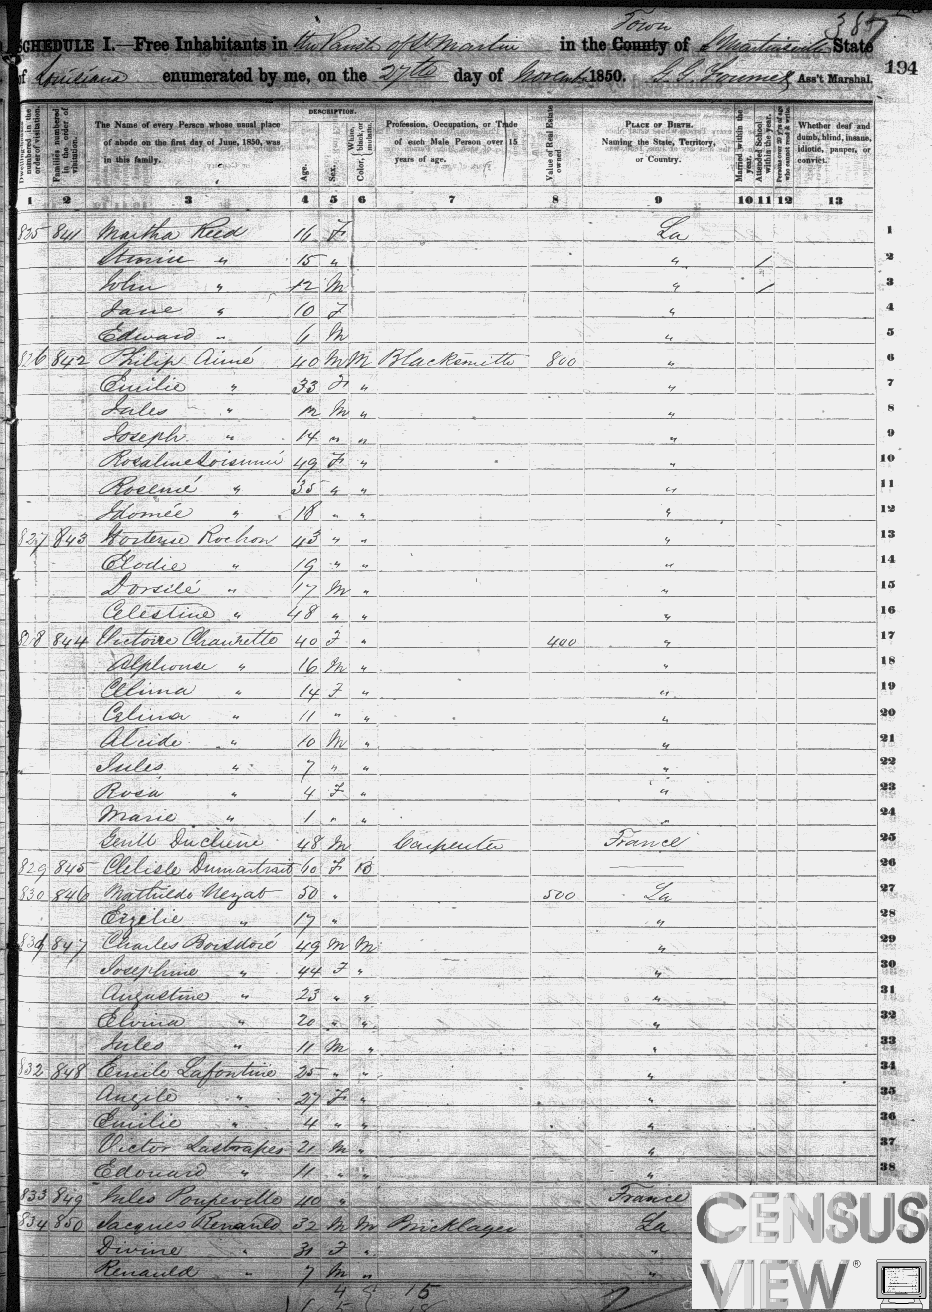 387
SCHEDULE I.—Free Inhabitants in the Parish of St Martin in the County Town of St Martinsville State
of Louisiana enumerated by me, on the 27th day of November 1850. Ass't Marshal. 194
Dwelling-houses numbered in the order of visitation.
Families numbered in the order of visitation.
The Name of every Person whose usual place of abode on the first day of June, 1850, was in this family.
DESCRIPTION.
Age.
Sex.
Color, White, black, or mulatto.
Profession, Occupation, or Trade of each Male Person over 15 years of age.
Value of Real Estate owned.
PLACE OF BIRTH. Naming the State, Territory, or Country.
Married within the year.
Attended School within the year.
Persons over 20 y'rs of age who cannot read & write.
Whether deaf and dumb, blind, insane, idiotic, pauper, or convict.
1 2 3 4 5 6 7 8 9 10 11 12 13
825 841 Martha Reed 16 F La 1
" 15 " " / 2
John " 12 M " / 3
Jane " 10 F " 4
Edward " 6 M " 5
826 842 Philip Aimé 40 M M Blacksmith 800 " 6
Emilie " 33 F " " 7
Jules " 12 M " " 8
Joseph " 14 " " " 9
Rosaline 49 F " " 10
Rosemé " 35 " " " 11
Idomée " 18 " " " 12
827 843 Hortense Rochon 43 " " " 13
Elodie " 19 " " " 14
Dorsilé " 17 M " " 15
Celestine " 48 " " " 16
828 844 Victoire 40 F " 400 " 17
Alphonse " 16 M " " 18
Clima " 14 F " " 19
Celina " 11 " " " 20
Alcide " 10 M " " 21
Jules " 7 " " " 22
Rosa " 4 F " " 23
Marie " 1 " " " 24
Duchene 48 M Carpenter France 25
829 845 Clelisle Dumartrait 60 F B 26
830 846 Mathilde Nezat 50 " 500 La 27
Eizelie " 17 " " 28
831 847 Charles Boisdoré 49 M M " 29
Josephine " 44 F " " 30
Augustine " 23 " " " 31
Elvina " 20 " " " 32
Jules " 11 M " " 33
832 848 Emile Lafontine 25 " " " 34
Angile " 27 F " " 35
Emilie " 4 " " " 36
Victor Lastrapes 21 M " " 37
Edouard " 11 " " " 38
833 849 Jules Poupeville 40 " France
834 850 Jacques Renauld 32 M M Bricklayer La
Divine " 31 F " "
Renauld " 7 M " "
4 15
5 18
CENSUS VIEW ®